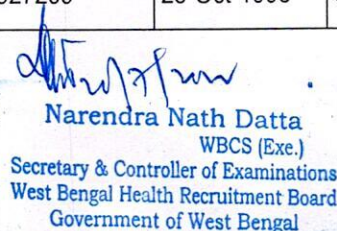 Narendra Nath Datta
WBCS (Exe.)
Secretary & Controller of Examinations
West Bengal Health Recruitment Board
Government of West Bengal